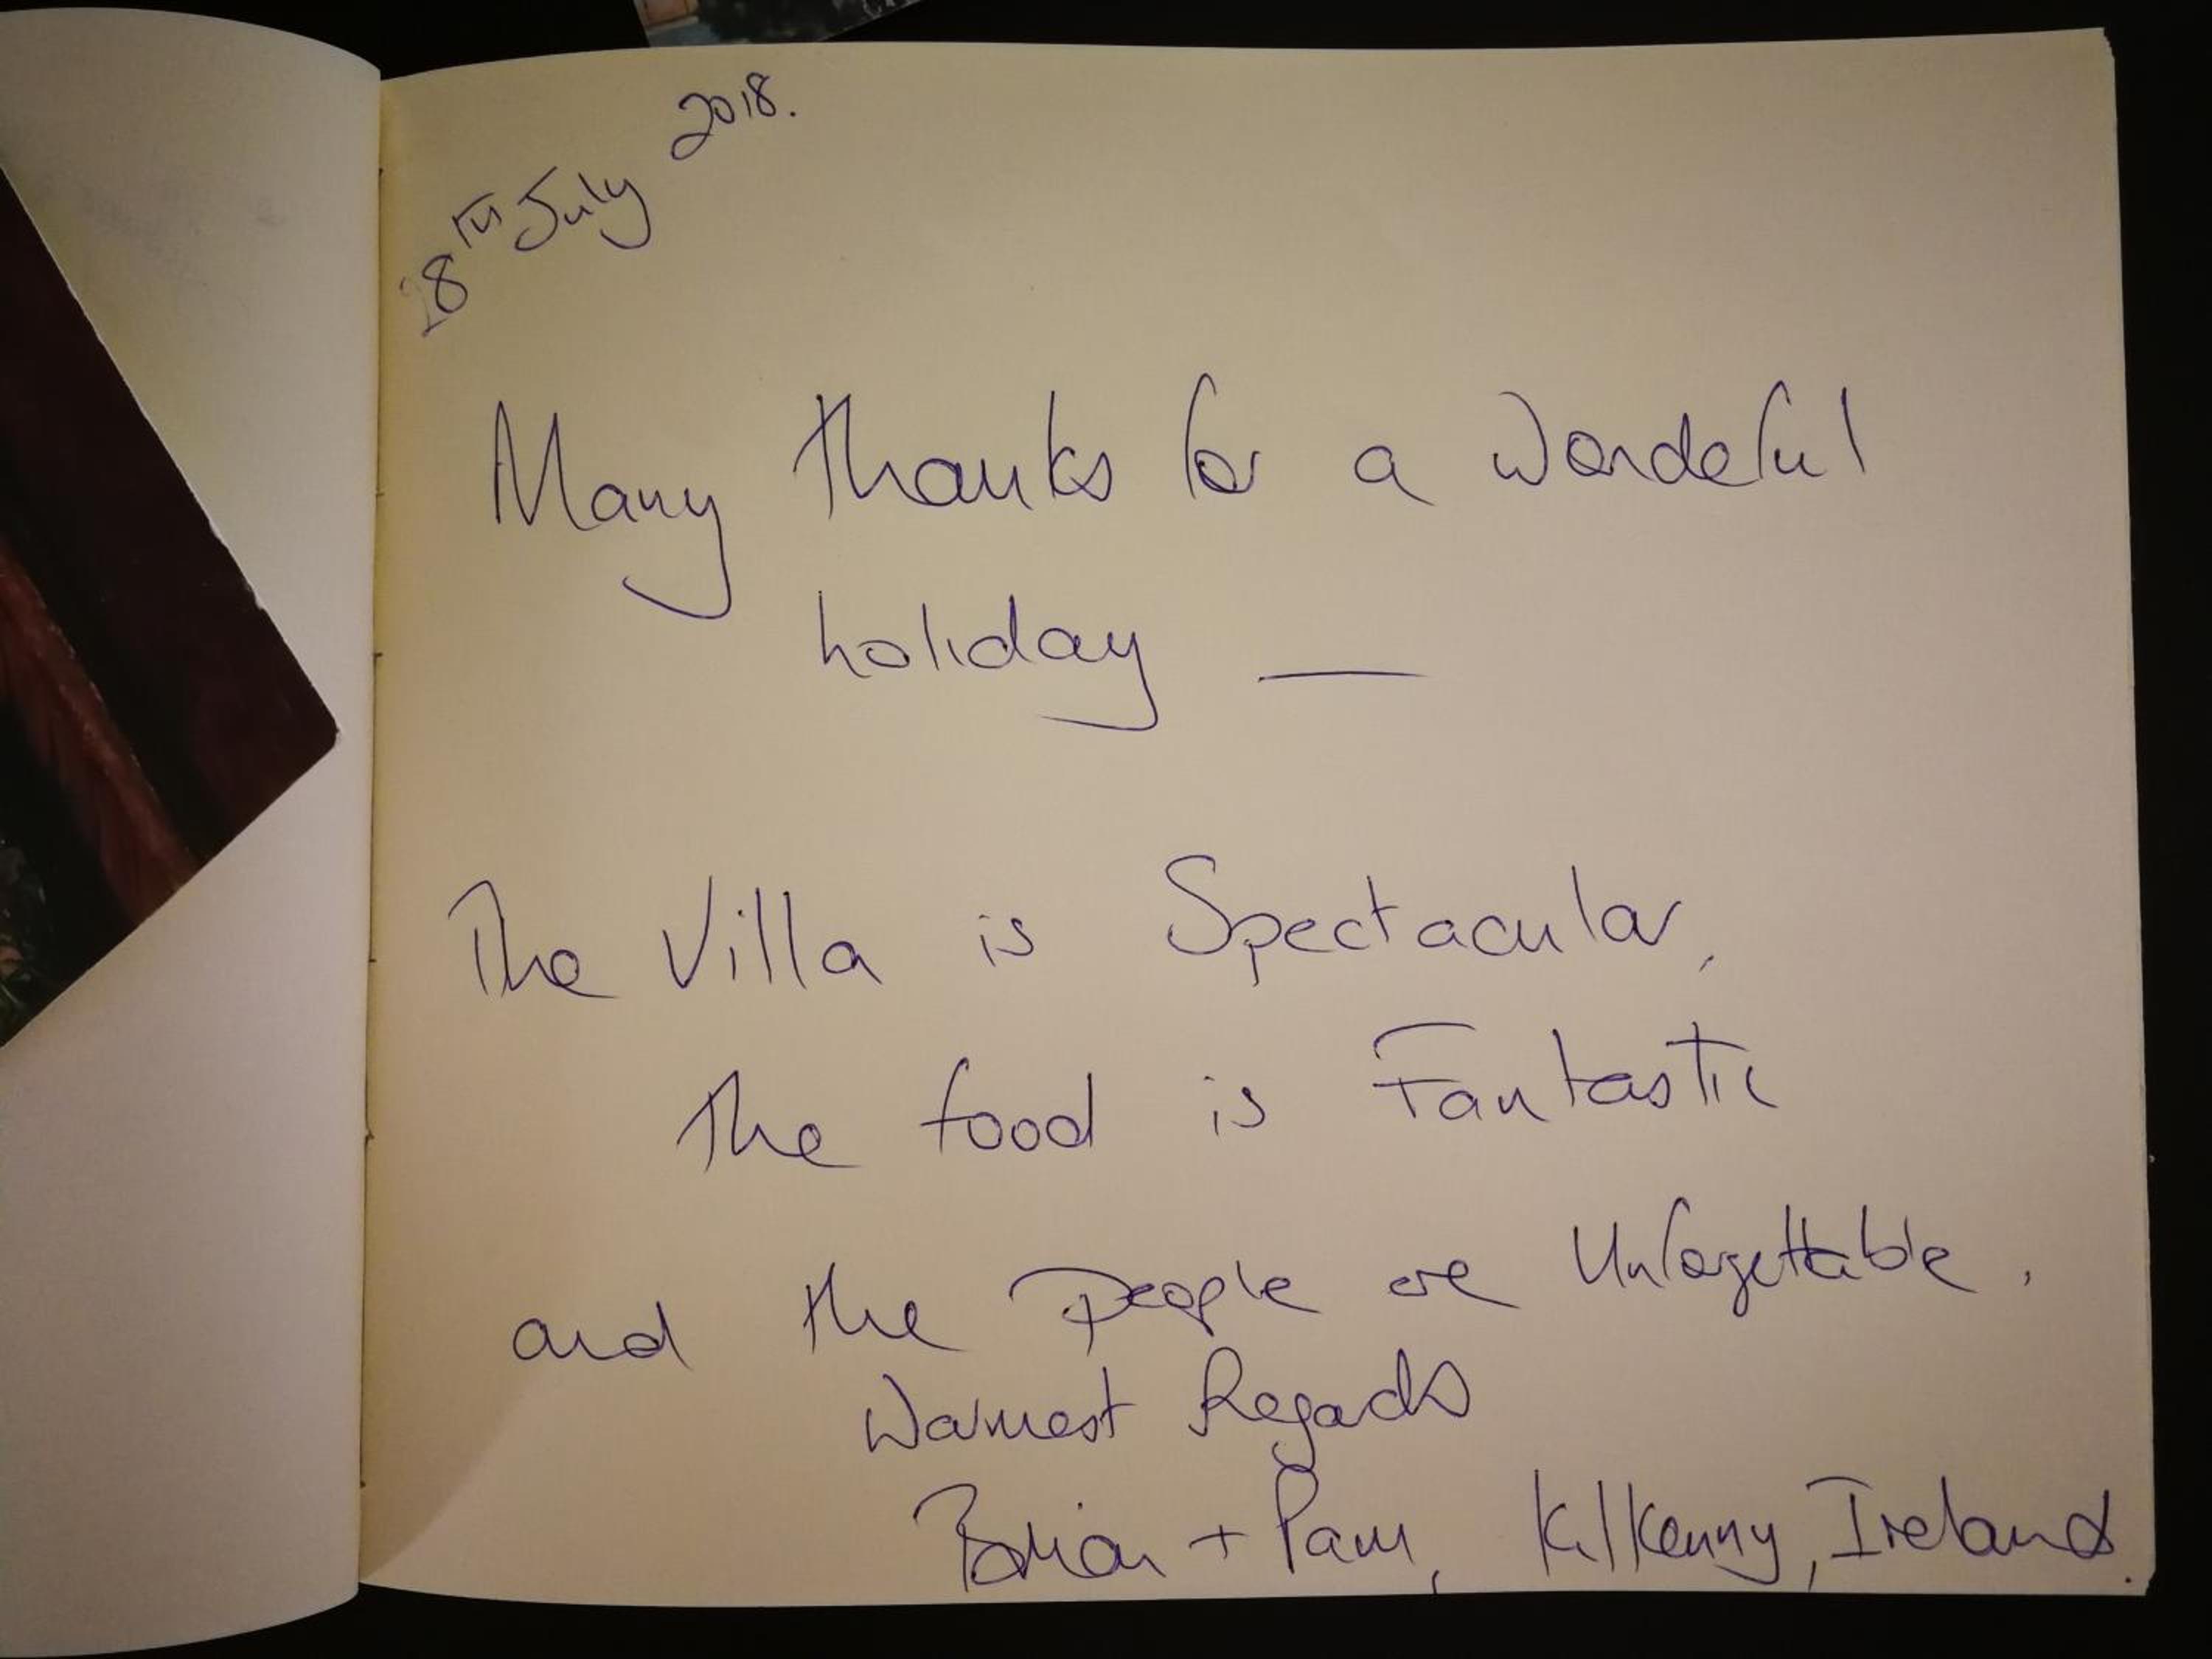 28TH July 2018.
Many thanks for a wondeful
holiday —
The Villa is Spectacular,
the food is Fantastic
and the people are Unforgettable.
Warmest Regards
Brian + Pam, Kilkenny, Ireland.